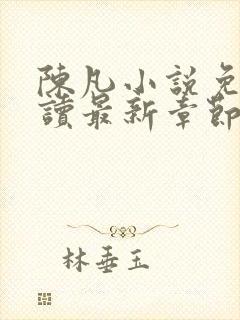 陳凡小說免
讀最新章節
林垂玉